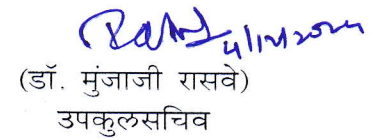 4/12/2024
(डॉ. मुंजाजी रासवे)
उपकुलसचिव